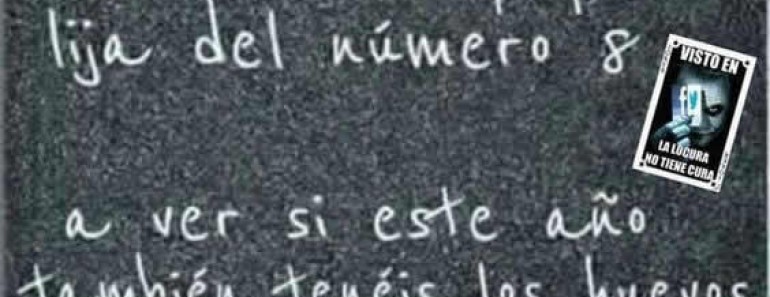 lija del número 8
VISTO EN
LA LOCURA
NO TIENE CURA
a ver si este año
también tenéis los huevos